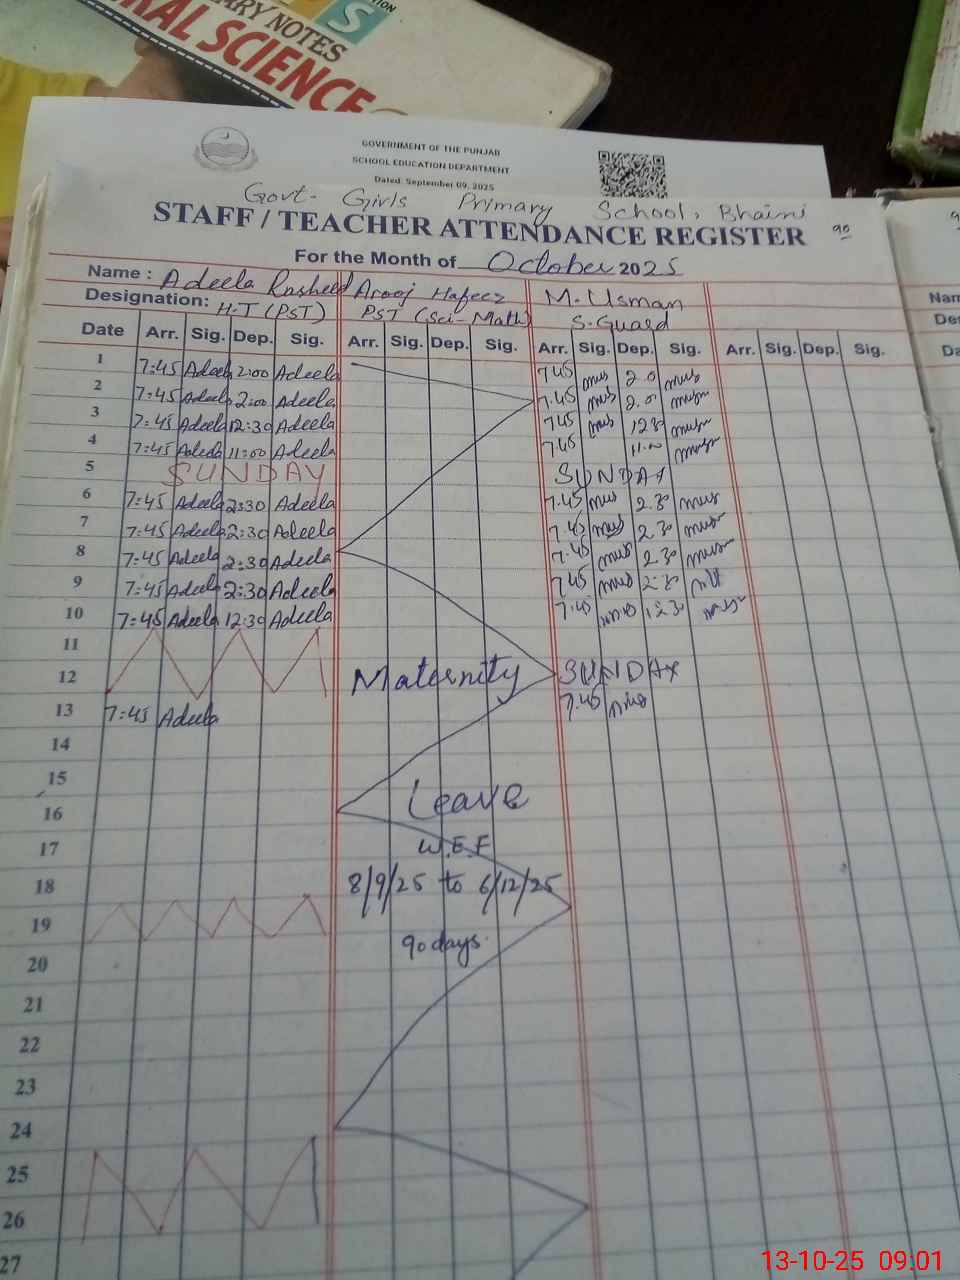 ARY NOTES
RAL SCIENCE
GOVERNMENT OF THE PUNJAB
SCHOOL EDUCATION DEPARTMENT
Dated: September 09, 2025
Govt- Girls Primary School, Bhaini
STAFF / TEACHER ATTENDANCE REGISTER 90
For the Month of October 2025
Name : Adeela Rasheed Arooj Hafeez M. Usman
Designation: H-T (PST) PST (Sci-Math) S. Guard
Date Arr. Sig. Dep. Sig. Arr. Sig. Dep. Sig. Arr. Sig. Dep. Sig. Arr. Sig. Dep. Sig.
1 7:45 Adeela 2:00 Adeela 7.45 2.0
2 7:45 Adeela 2:00 Adeela 7.45 2.0
3 7:45 Adeela 12:30 Adeela 7.45 12 30
4 7:45 Adeela 11:00 Adeela 7.45
5 SUNDAY SUNDAY
6 7:45 Adeela 2:30 Adeela 7.45 2.30
7 7:45 Adeela 2:30 Adeela 7.45 2.30
8 7:45 Adeela 2:30 Adeela 7.45 2.30
9 7:45 Adeela 2:30 Adeela 7.45 2.30
10 7:45 Adeela 12:30 Adeela 7.45 12.30
11
12 Maternity SUNDAY
13 7:45 Adeela 7.45
14
15 Leave
16
17 W.E.F
18 8/9/25 to 6/12/25
19 90 days.
20
21
22
23
24
25
26
27
Nam
Des
Da
13-10-25 09:01